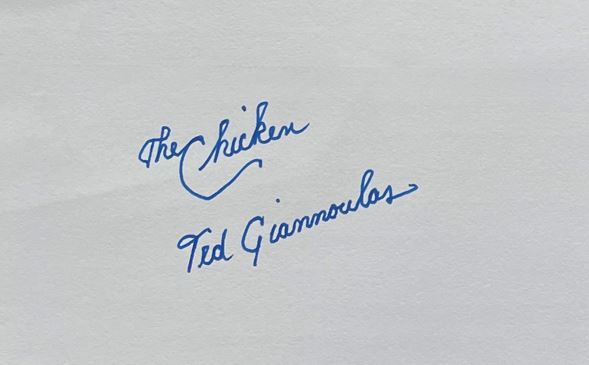 The Chicken
Ted Giannoulas